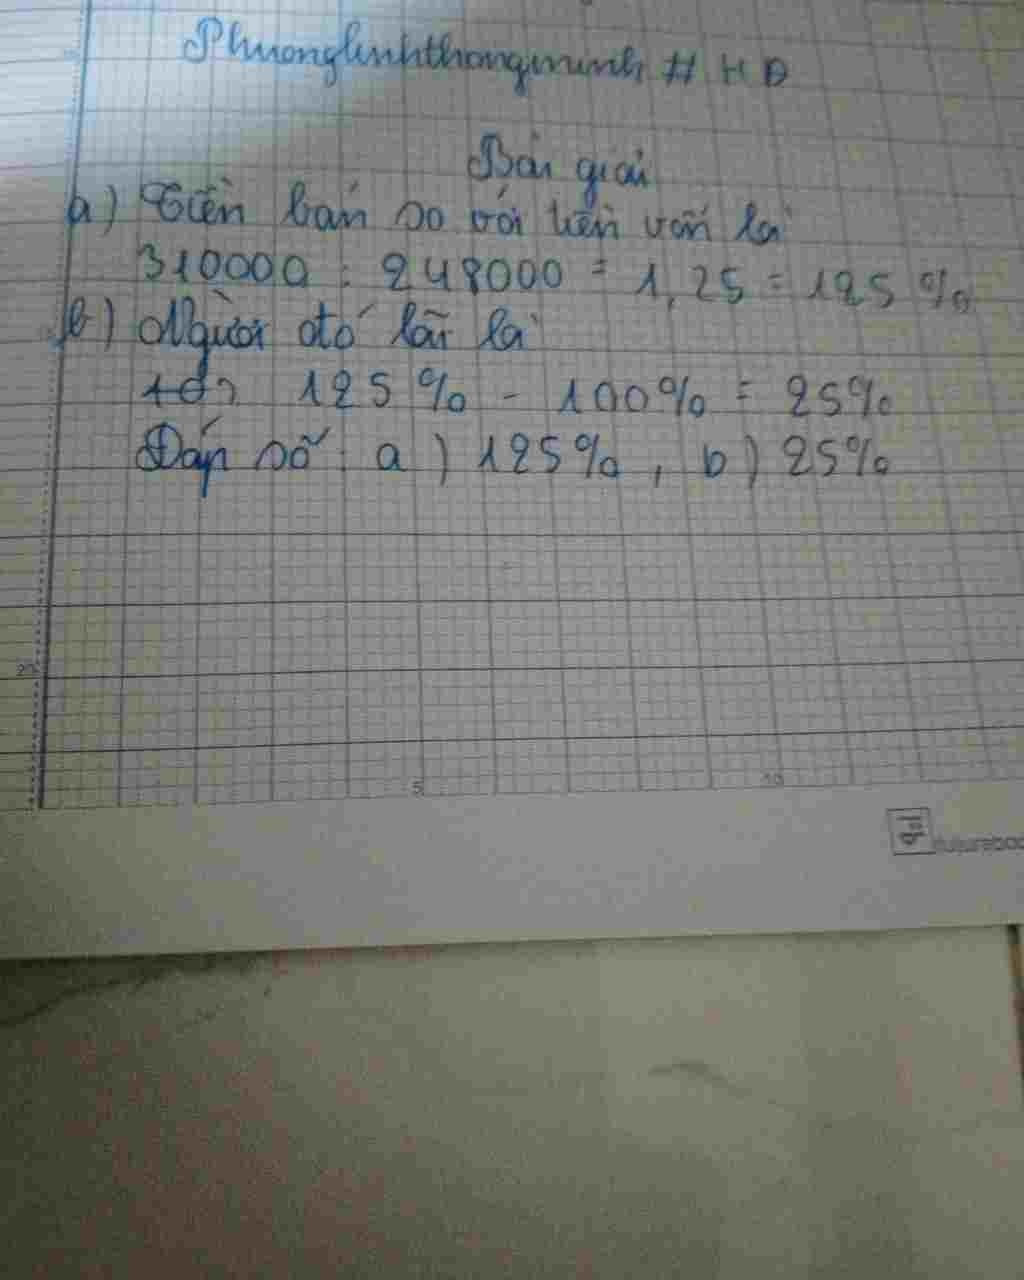 Phuonglinhthongminh # HD
Bài giải
a) Tiền bán so với tiền vốn là
310000 : 248000 = 1,25 = 125%
b) Người đó lãi là
125% - 100% = 25%
Đáp số : a) 125%, b) 25%
20
5
10
futureboo